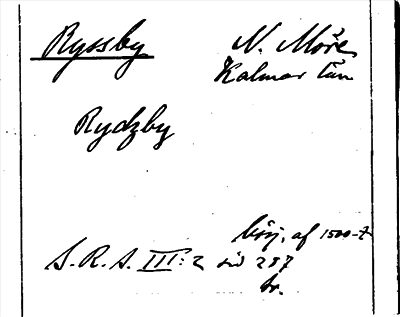 Ryssby N. Möre
Kalmar län
Rydzby
börj. af 1500-t
S.R.S. III:2 sid 287
br.